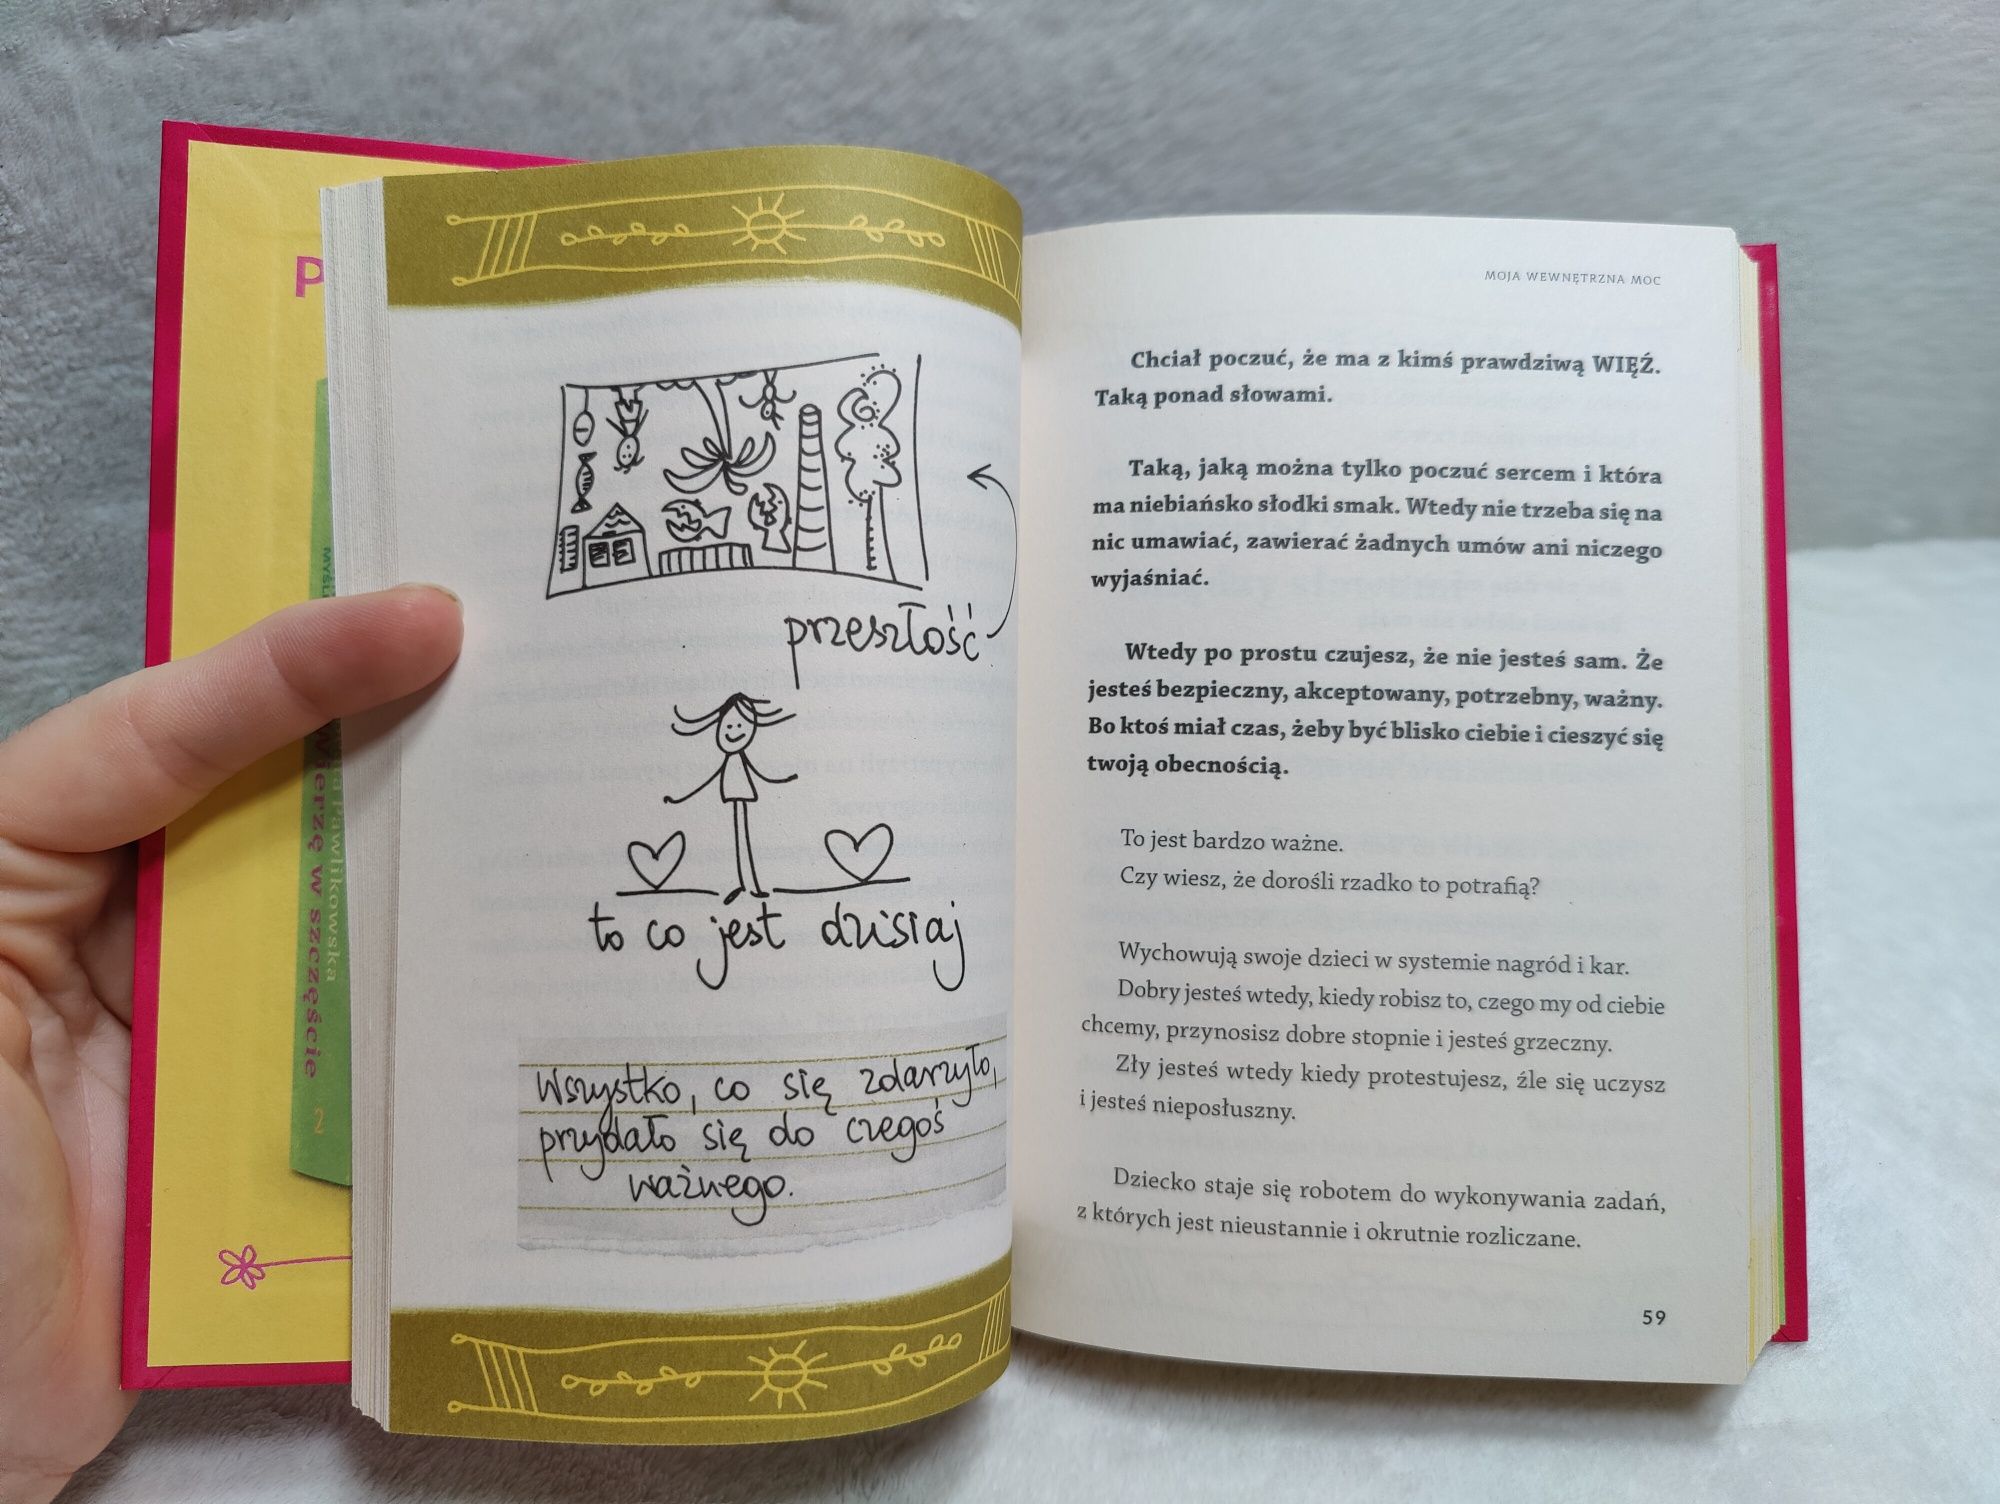 P
MYŚL
Pawlikowska
wierzę w szczęście
2
przeszłość
to co jest dzisiaj
Wszystko, co się zdarzyło,
przydało się do czegoś
ważnego.
MOJA WEWNĘTRZNA MOC
Chciał poczuć, że ma z kimś prawdziwą WIĘŹ.
Taką ponad słowami.
Taką, jaką można tylko poczuć sercem i która
ma niebiańsko słodki smak. Wtedy nie trzeba się na
nic umawiać, zawierać żadnych umów ani niczego
wyjaśniać.
Wtedy po prostu czujesz, że nie jesteś sam. Że
jesteś bezpieczny, akceptowany, potrzebny, ważny.
Bo ktoś miał czas, żeby być blisko ciebie i cieszyć się
twoją obecnością.
To jest bardzo ważne.
Czy wiesz, że dorośli rzadko to potrafią?
Wychowują swoje dzieci w systemie nagród i kar.
Dobry jesteś wtedy, kiedy robisz to, czego my od ciebie
chcemy, przynosisz dobre stopnie i jesteś grzeczny.
Zły jesteś wtedy kiedy protestujesz, źle się uczysz
i jesteś nieposłuszny.
Dziecko staje się robotem do wykonywania zadań,
z których jest nieustannie i okrutnie rozliczane.
59